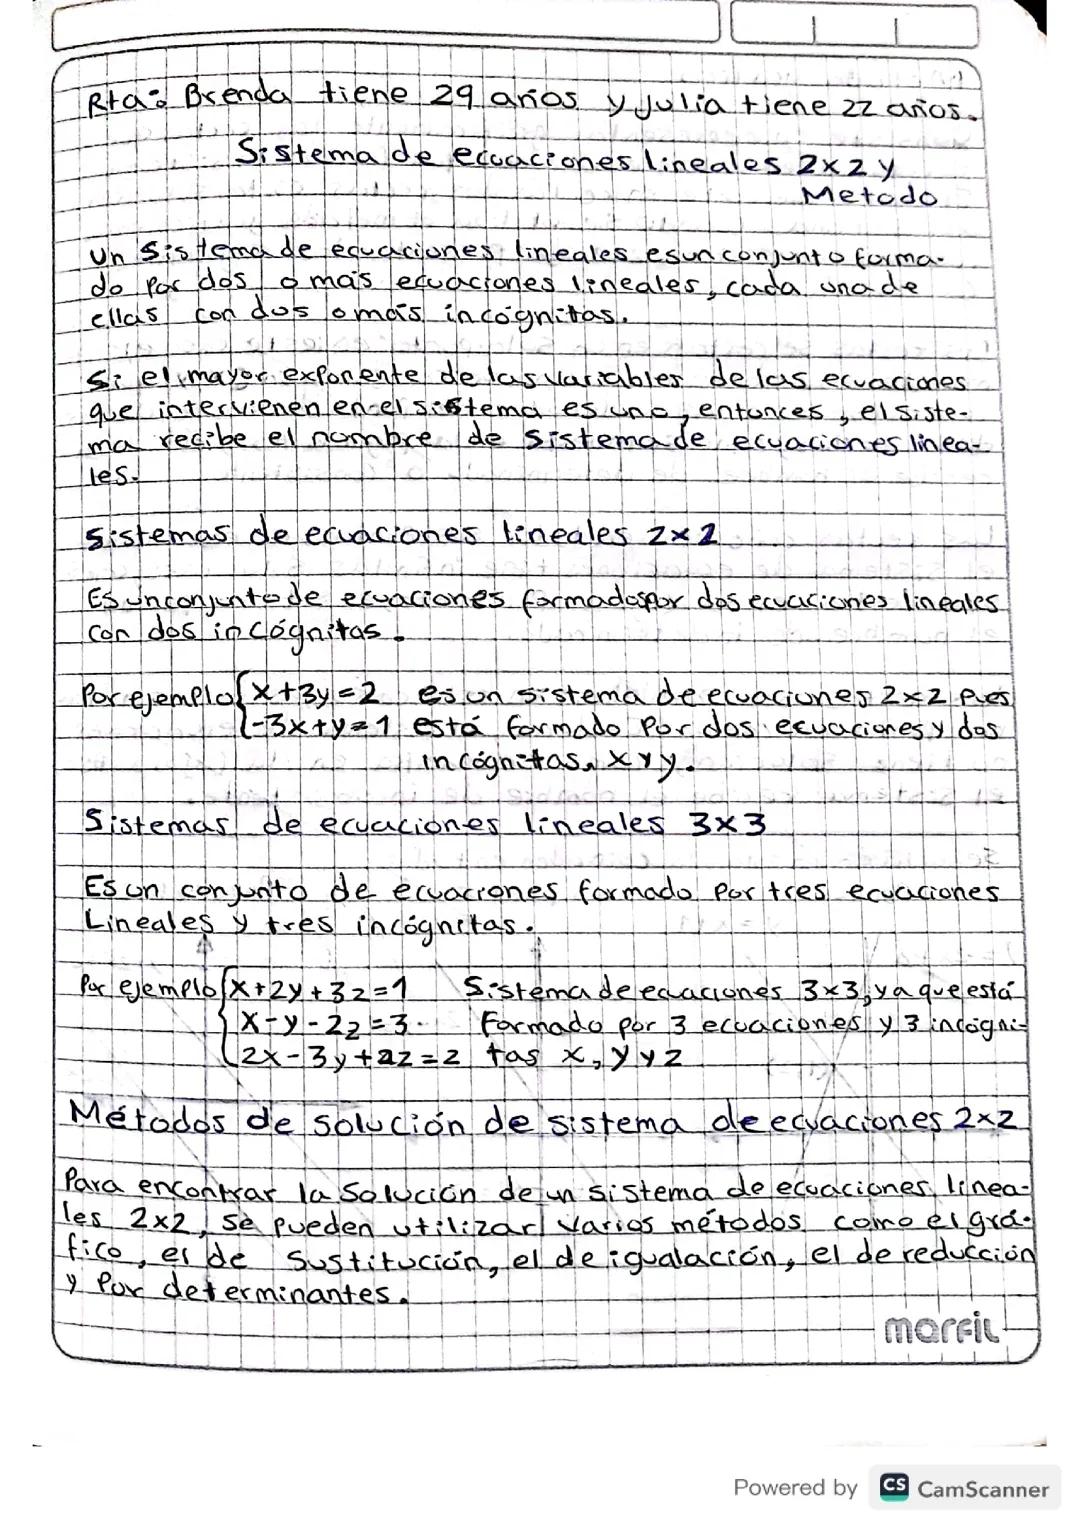 Rta: Brenda tiene 29 años y Julia tiene 22 años.
Sistema de ecuaciones lineales 2x2 y
Metodo
Un sistema de ecuaciones lineales es un conjunto forma-
do por dos o más ecuaciones lineales, cada una de
ellas con dos o más incógnitas.
Si el mayor exponente de las variables de las ecuaciones
que intervienen en el sistema es uno, entonces, el siste-
ma recibe el nombre de sistema de ecuaciones linea-
les.
Sistemas de ecuaciones lineales 2x2
Es un conjunto de ecuaciones formados por dos ecuaciones lineales
con dos incógnitas.
Por ejemplo {x+3y=2 es un sistema de ecuaciones 2x2 pues
{-3x+y=1 está formado por dos ecuaciones y dos
incógnitas, x y y.
Sistemas de ecuaciones lineales 3x3
Es un conjunto de ecuaciones formado por tres ecuaciones
Lineales y tres incógnitas.
Por ejemplo {x+2y+3z=1 Sistema de ecuaciones 3x3, ya que está
{x-y-2z=3. formado por 3 ecuaciones y 3 incógni-
{2x-3y+2z=2 tas x, y y z
Métodos de solución de sistema de ecuaciones 2x2
Para encontrar la solución de un sistema de ecuaciones linea-
les 2x2, se pueden utilizar varios métodos como el grá-
fico, el de sustitución, el de igualación, el de reducción
y por determinantes.
morfil
Powered by CS CamScanner